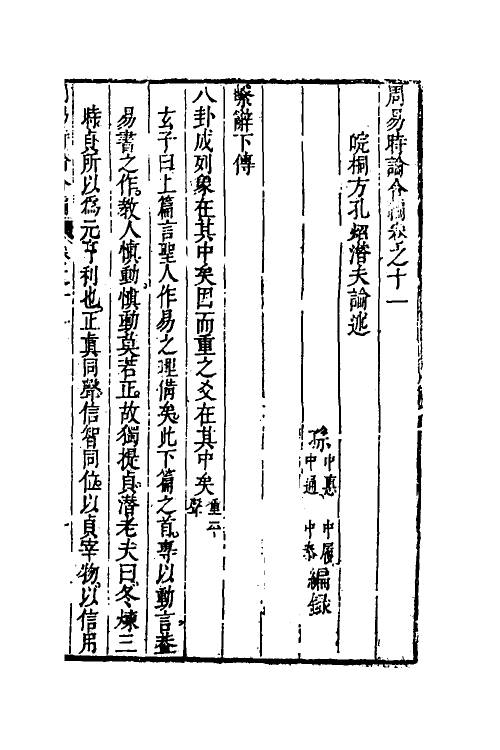 周易時論合編卷之十一
皖桐方孔炤潛夫論述
孫 中德 中履
中通 中泰 編錄
繫辭下傳
八卦成列象在其中矣因而重之爻在其中矣 重平聲
玄子曰上篇言聖人作易之理備矣此下篇之首專以動言蓋
易書之作教人慎動慎動莫若正故獨提貞潛老夫曰冬煉三
時貞所以為元亨利也正真同聲信智同位以貞宰物以信用